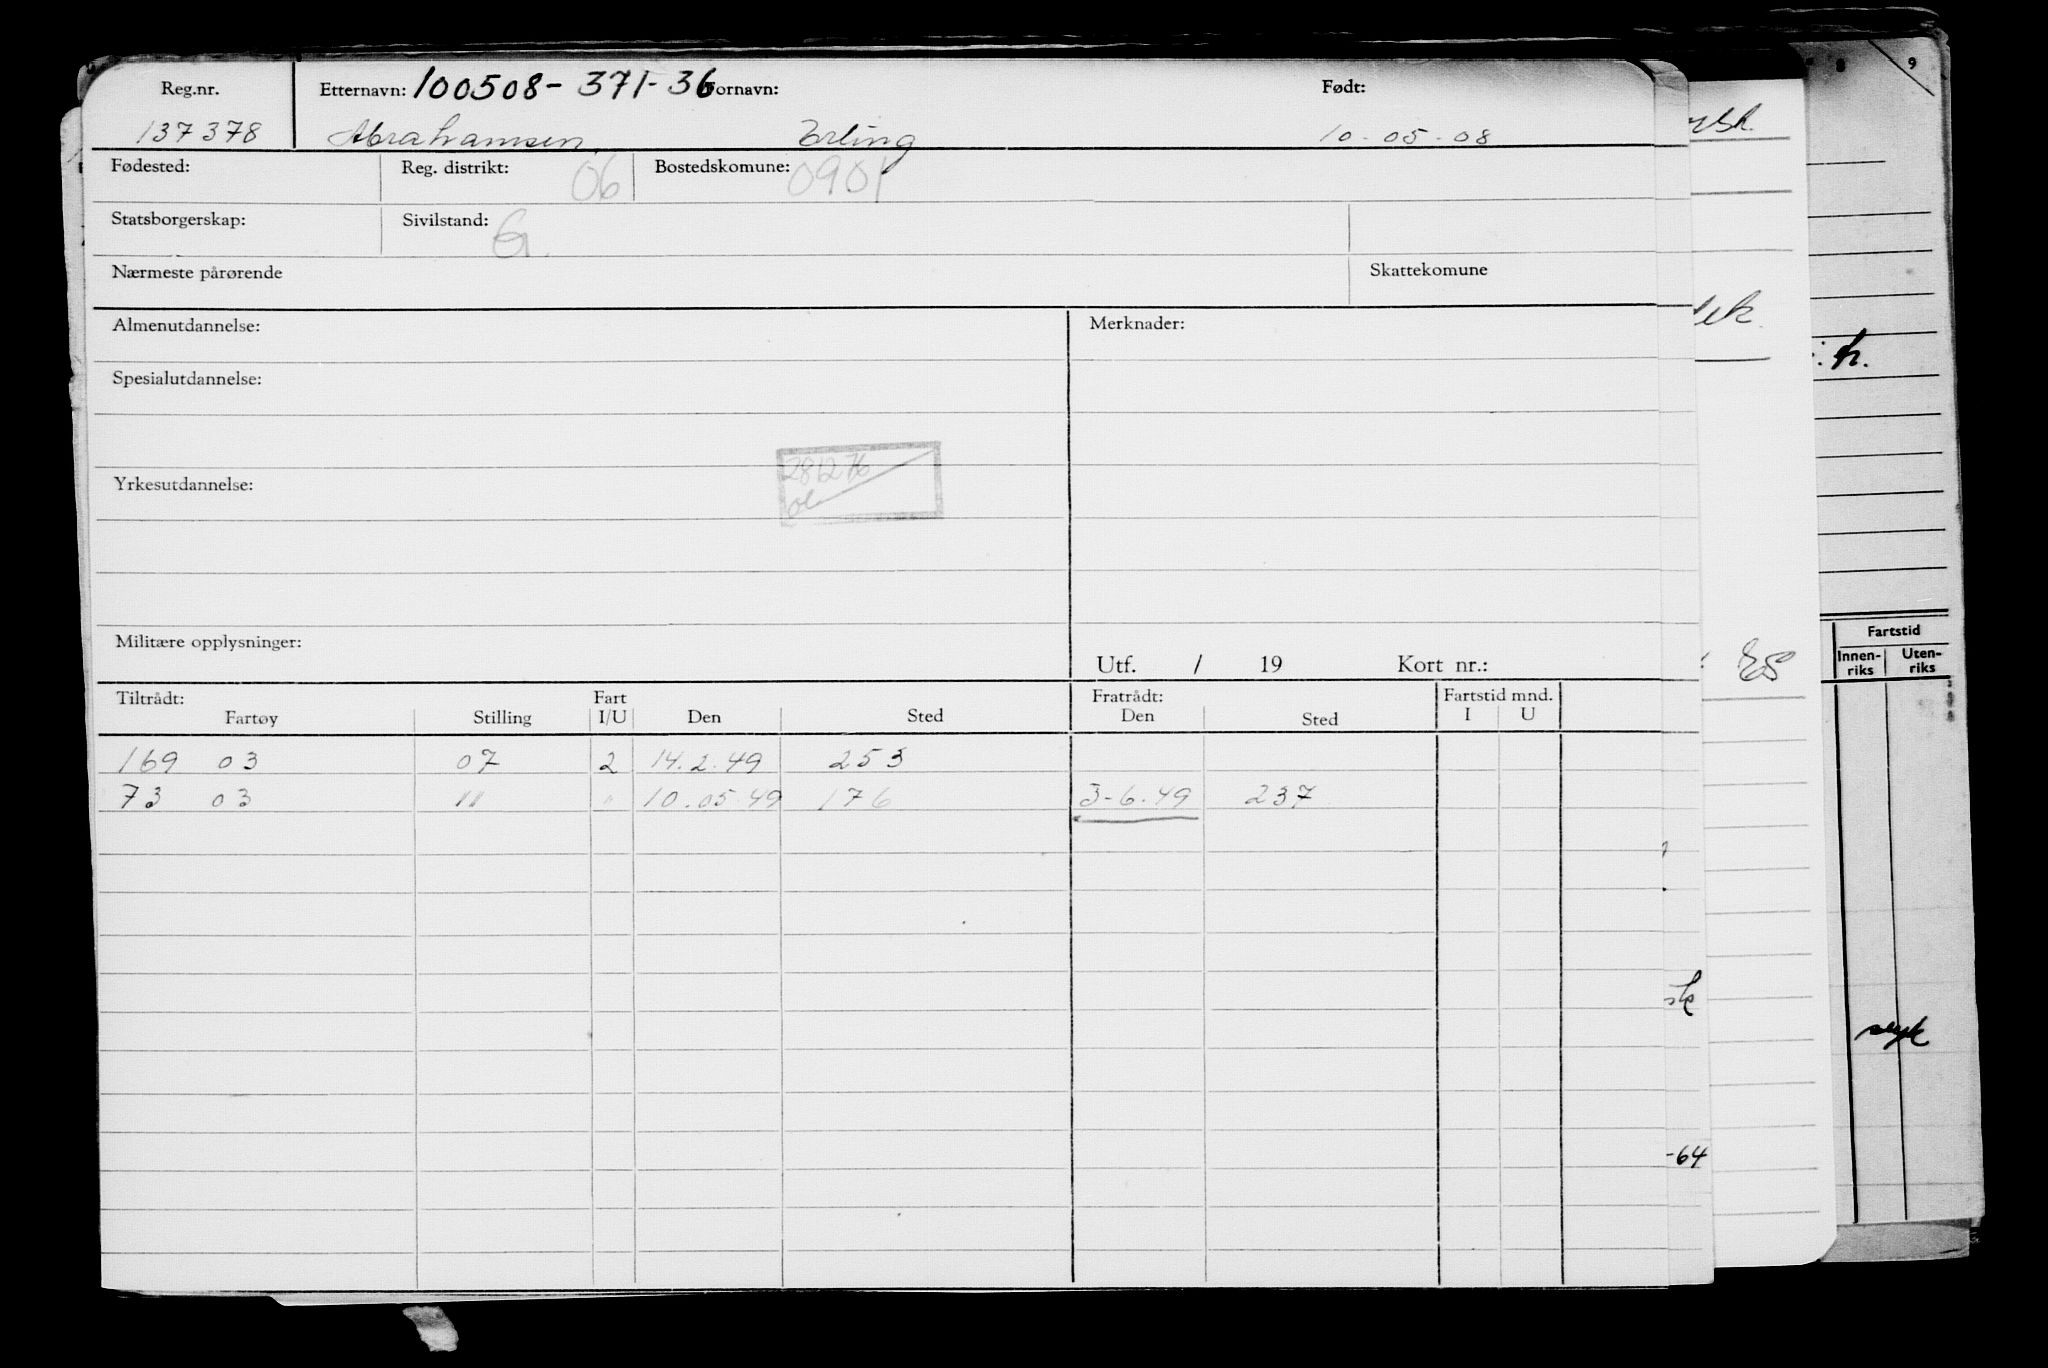 Reg.nr. Etternavn: 100508-371-36 Fornavn: Født:
137378 Abrahamsen Erling 10-05-08
Fødested: Reg. distrikt: 06 Bostedskomune: 0901
Statsborgerskap: Sivilstand: G.
Nærmeste pårørende Skattekomune
Almenutdannelse: Merknader:
Spesialutdannelse:
281276
Yrkesutdannelse:
Militære opplysninger:
Utf. / 19 Kort nr.:
Tiltrådt: Fart Fratrådt: Fartstid mnd.
Fartøy Stilling I/U Den Sted Den Sted I U
169 03 07 2 14.2.49 253
73 03 " " 10.05.49 176 3-6.49 237
9
Fartstid
Innen- Uten-
riks riks
sk
-64